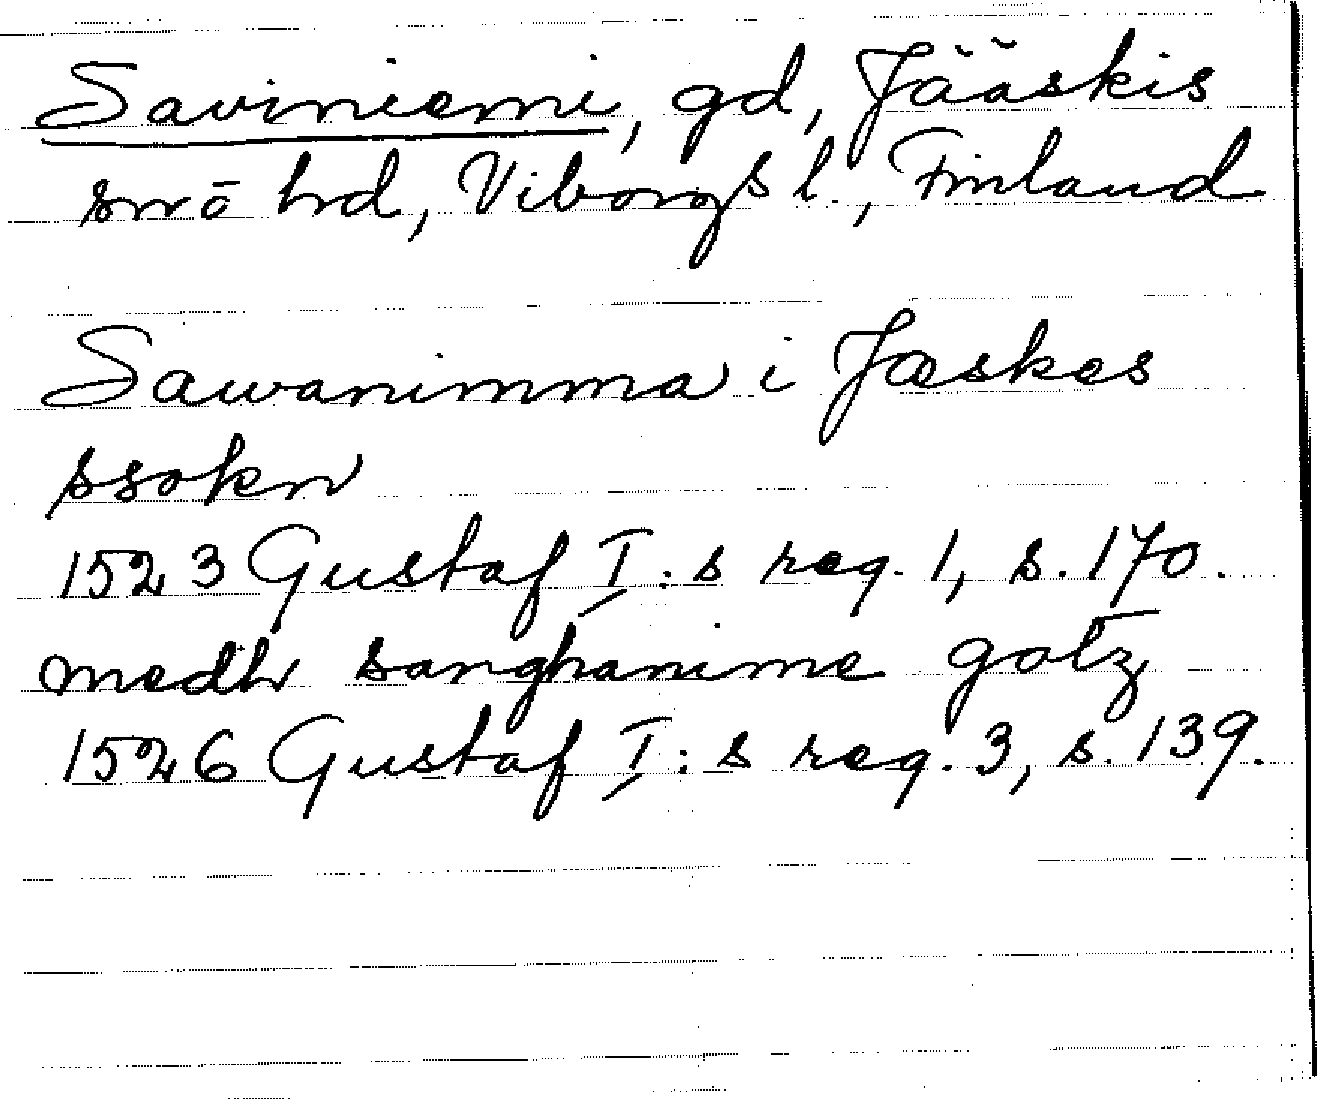 Saviniemi, gd, Jääskis
sn o hd, Viborgs l., Finland
Sawanimma i Jæskes
ssokn
1523 Gustaf I:s reg. 1, s. 170.
medh sanghanime gotz
1526 Gustaf I:s reg. 3, s. 139.